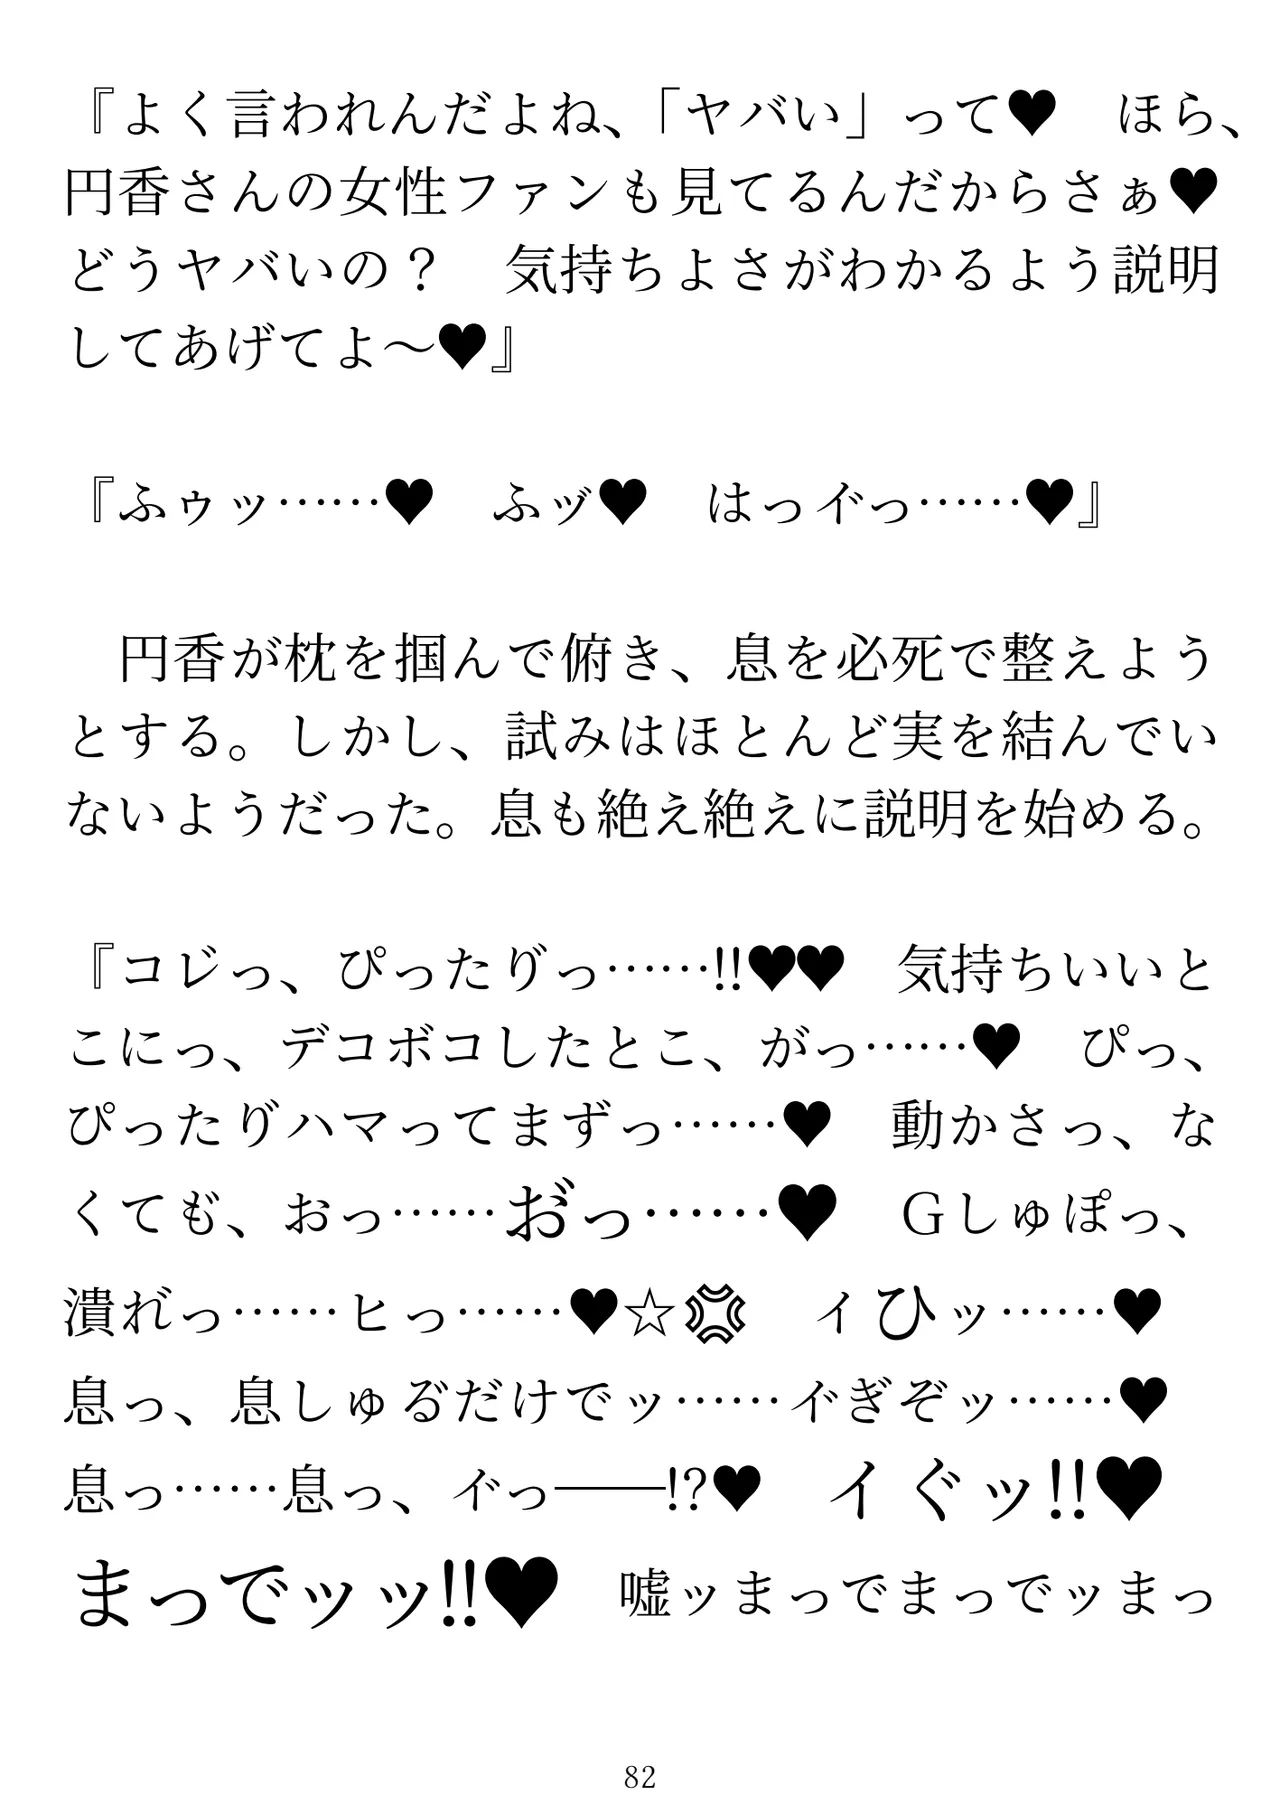 『よく言われんだよね、「ヤバい」って♥　ほら、
円香さんの女性ファンも見てるんだからさぁ♥
どうヤバいの？　気持ちよさがわかるよう説明
してあげてよ～♥』
『ふゥッ……♥　ふッ゛♥　はっイ゛っ……♥』
　円香が枕を掴んで俯き、息を必死で整えよう
とする。しかし、試みはほとんど実を結んでい
ないようだった。息も絶え絶えに説明を始める。
『コレ゛っ、ぴったり゛っ……!!♥♥　気持ちいいと
こにっ、デコボコしたとこ、がっ……♥　ぴっ、
ぴったり゛ハマってまずっ……♥　動かさっ、な
くても゛、おっ……お゛っ……♥　Gしゅぽっ、
潰れ゛っ……ヒっ……♥☆💢　ィひッ……♥
息っ、息しゅる゛だけでッ……イ゛ぎぞッ……♥
息っ……息っ、イ゛っ――!?♥　イぐッ!!♥
まっでッッ!!♥　嘘ッまっでまっでッまっ
82